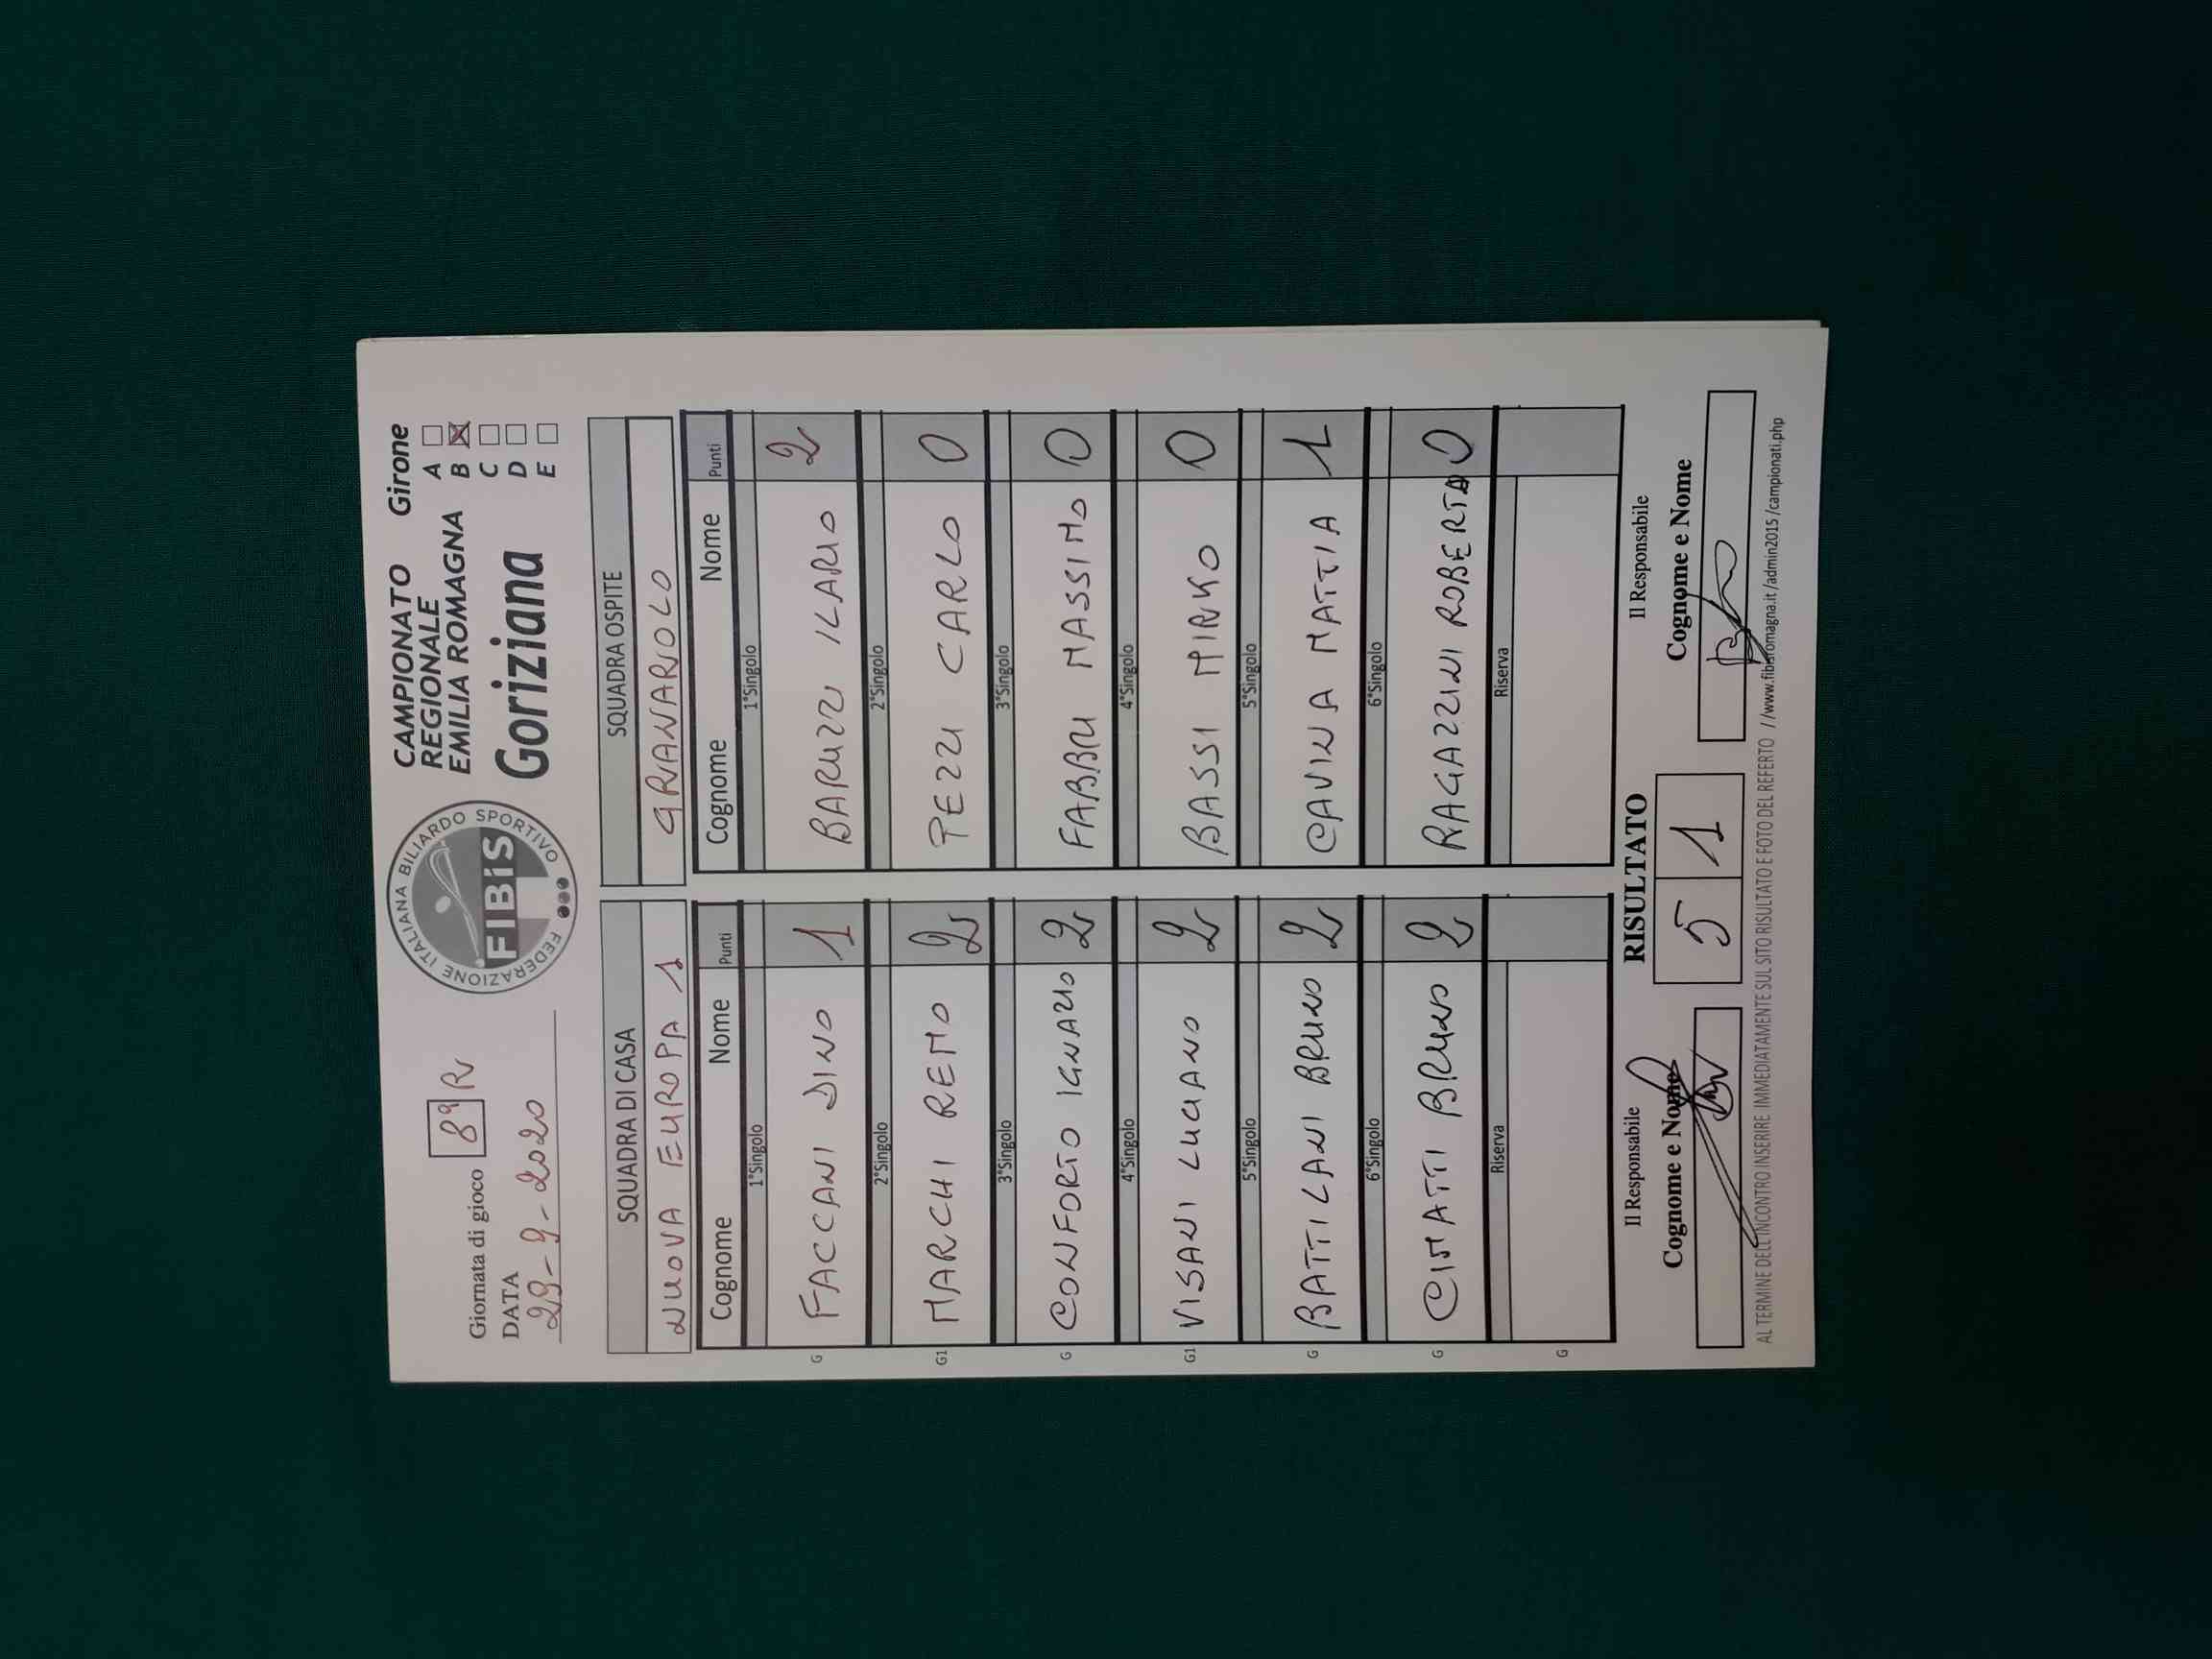 Giornata di gioco 8ª R
DATA
29-9-2020
FEDERAZIONE ITALIANA BILIARDO SPORTIVO
FIBiS
CAMPIONATO
REGIONALE
EMILIA ROMAGNA
Goriziana
Girone
A
B
C
D
E
SQUADRA DI CASA
NUOVA EUROPA 1
SQUADRA OSPITE
GRANAROLO
Cognome Nome Punti Cognome Nome Punti
1°Singolo 1°Singolo
G FACCANI DINO 1 BARUZZI ILARIO 2
2°Singolo 2°Singolo
G1 MARCHI REMO 2 PEZZI CARLO 0
3°Singolo 3°Singolo
G CONFORTO IGNAZIO 2 FABBRI MASSIMO 0
4°Singolo 4°Singolo
G1 VISANI LUCIANO 2 BASSI MIRKO 0
5°Singolo 5°Singolo
G BATTILANI BRUNO 2 CAVINA MATTIA 1
6°Singolo 6°Singolo
G CIMATTI BRUNO 2 RAGAZZINI ROBERTO 0
Riserva Riserva
G
Il Responsabile RISULTATO Il Responsabile
Cognome e Nome 5 1 Cognome e Nome
AL TERMINE DELL'INCONTRO INSERIRE IMMEDIATAMENTE SUL SITO RISULTATO E FOTO DEL REFERTO //www.fibisromagna.it/admin2015/campionati.php